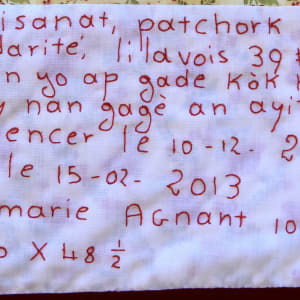 isanat, patchork
darité, lillavois 39
n yo ap gade kòk
nan gagè an ayi
encer le 10-12- 2
le 15-02- 2013
marie Agnant 10
x 48 ½